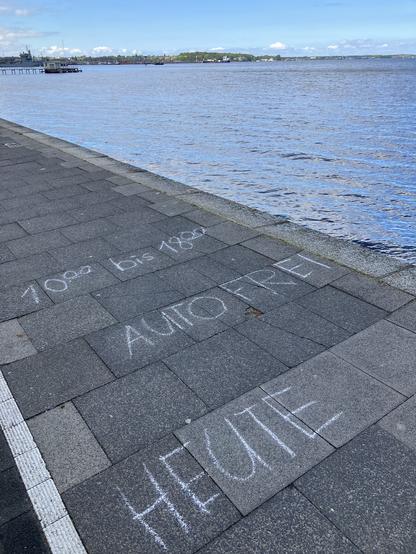 10⁰⁰ bis 18⁰⁰
AUTOFREI
HEUTE